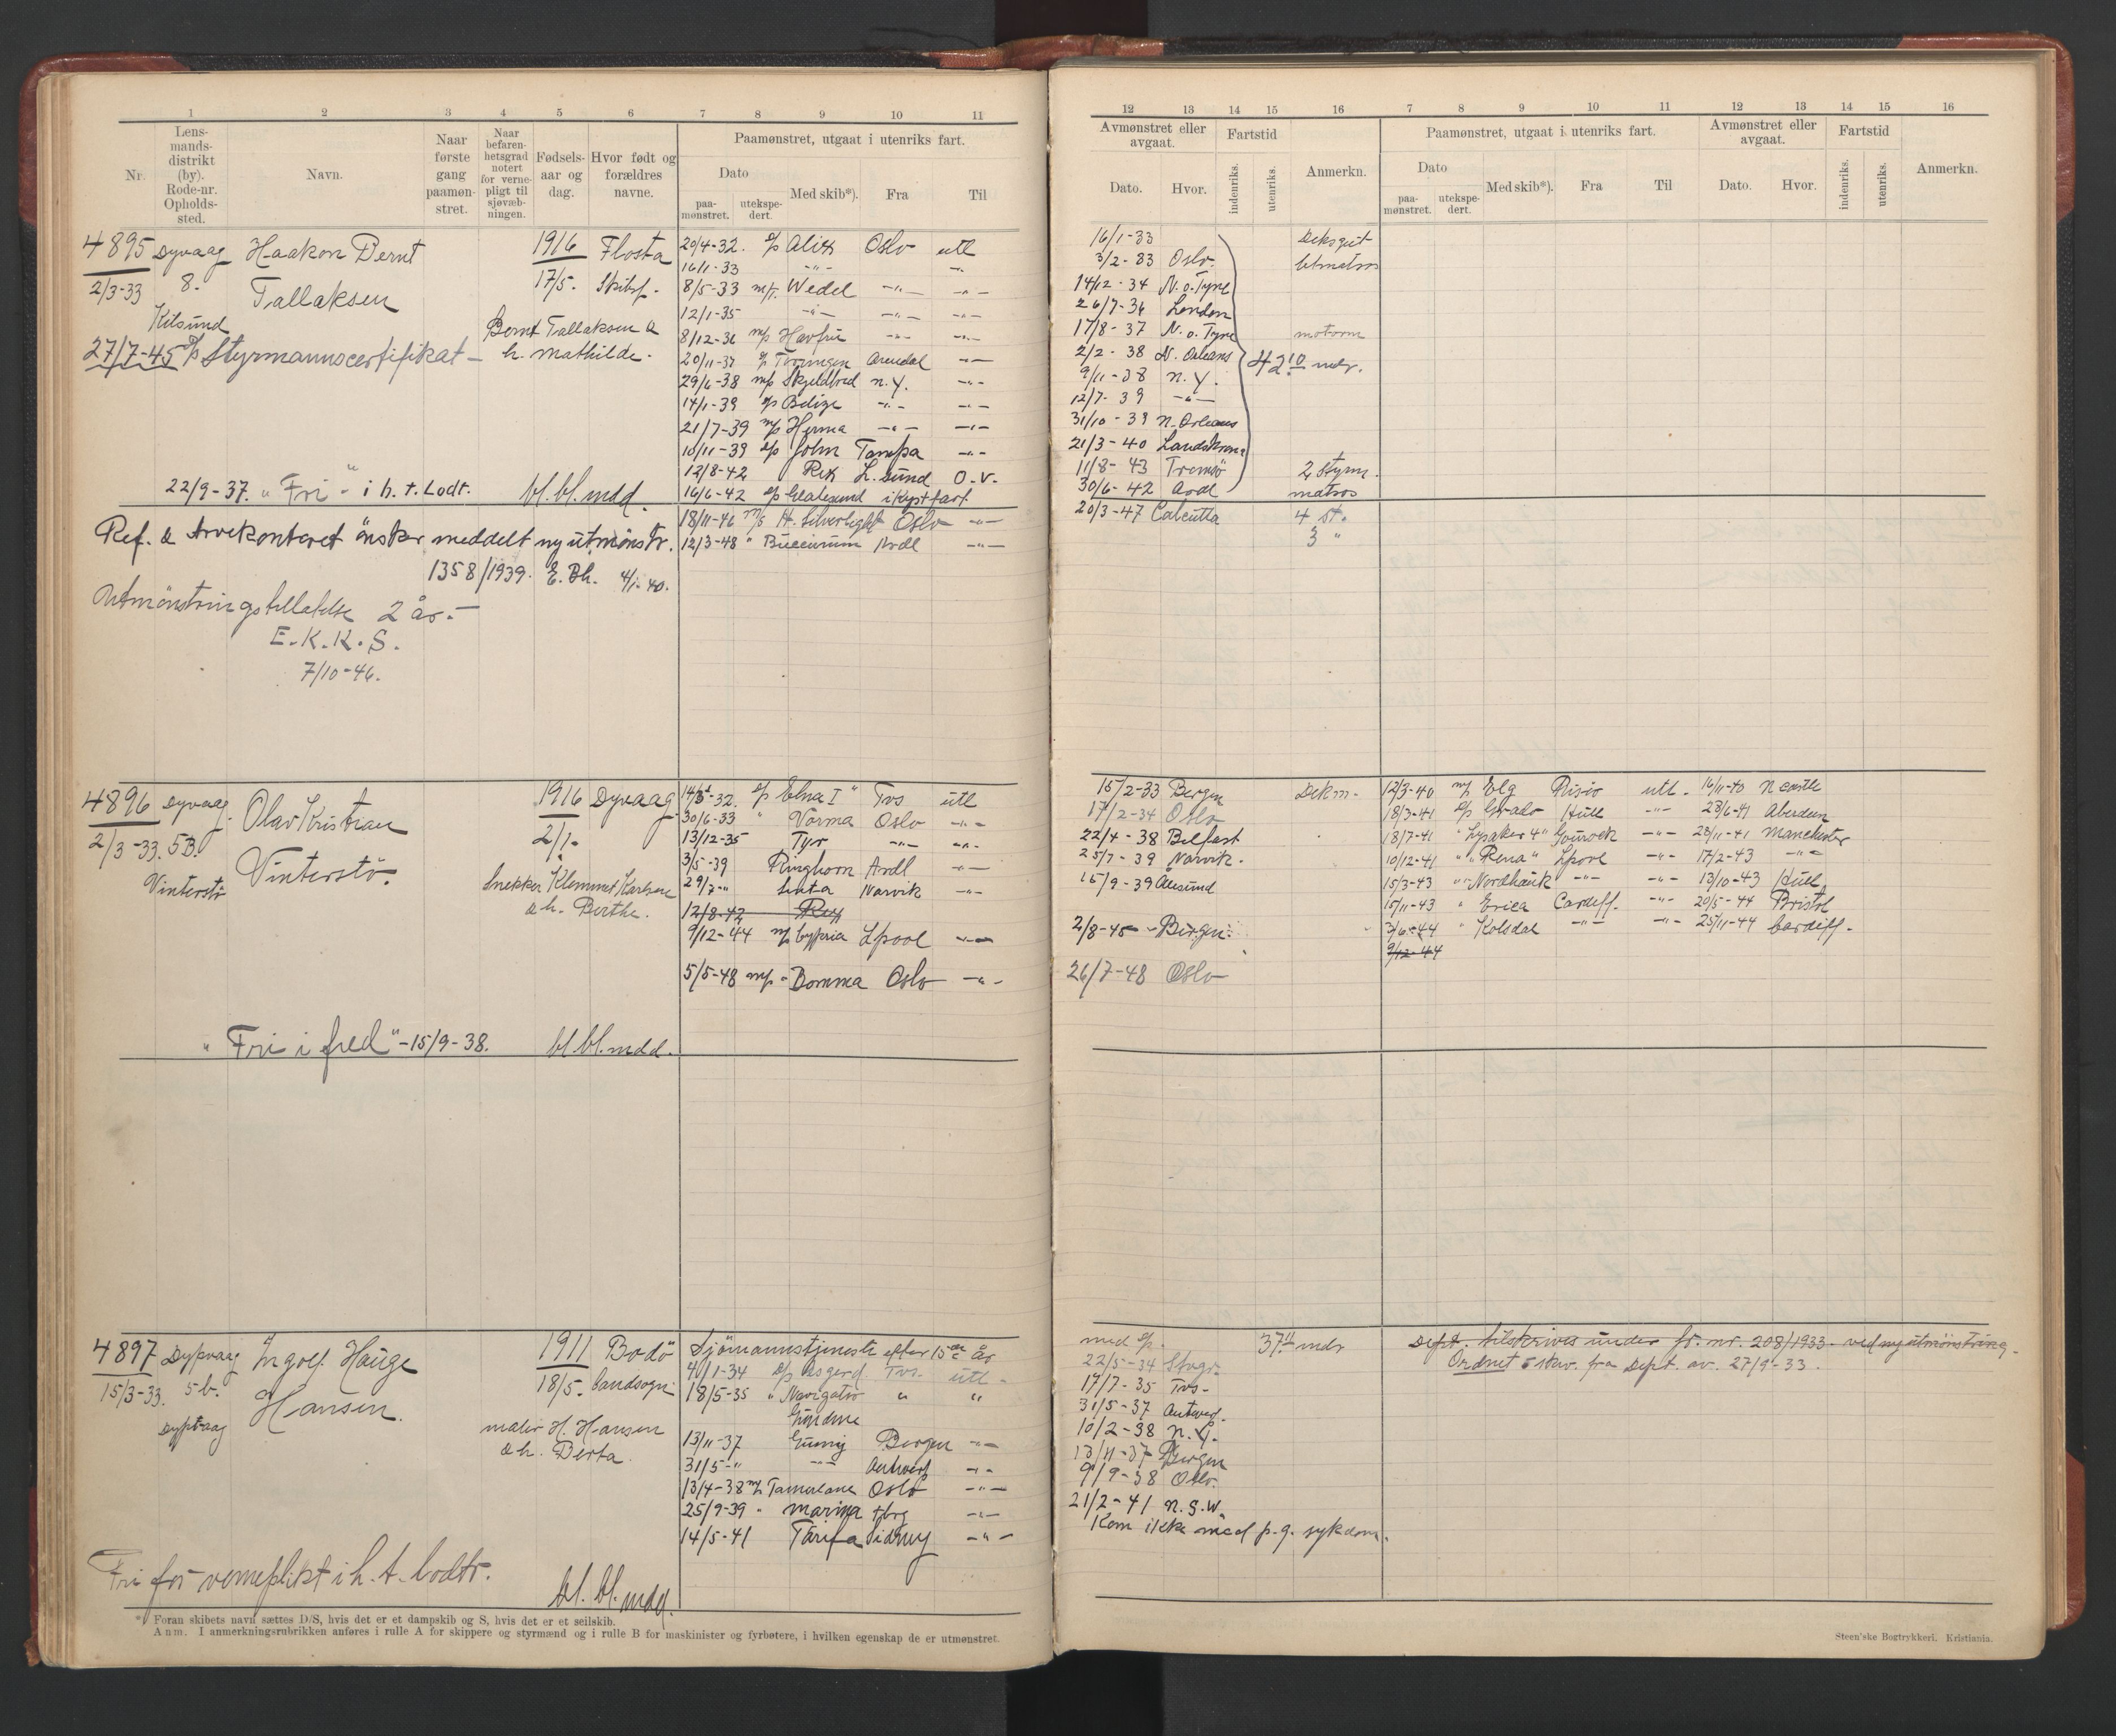 1 2 3 4 5 6 7 8 9 10 11
Nr.
Lens-
mands-
distrikt
(by).
Rode-nr.
Opholds-
sted.
Navn.
Naar
første
gang
paamøn-
stret.
Naar
befaren-
hetsgrad
notert
for verne-
pligt til
sjøvæb-
ningen.
Fødsels-
aar og
dag.
Hvor født og
forældres
navne.
Paamønstret, utgaat i utenriks fart.
Dato
paa-
mønstret.
utekspe-
dert.
Med skib*).
Fra
Til
4895 Dyvaag Haakon Bernt 1916 Flosta
2/3-33 8. Tallaksen 17/5. Skibsf.
Kilsund Bernt Tallaksen &
27/7-45 Styrmannscertifikat - h. Mathilde.
20/4-32. s/s Alix Oslo utl
16/1-33 -"- -"-
8/5-33 m/t. Wedel -"- -"-
12/1-35 -"- -"- -"-
8/12-36 m/s Havfru -"- -"-
20/11-37 Arendal -"-
29/6-38 m/s Skjeldbred N.Y. -"-
14/1-39 s/s Belize -"- -"-
21/7-39 m/s Herma -"- -"-
10/11-39 s/s John Tampa -"-
12/8-42 Rex L.sund O.V.
16/6-42 i Kystfart
18/11-46 m/s H. Silverlight Oslo -"-
12/3-48 " Buccinum Ardl -"-
22/9-37. "Fri" i h. t. Lodt. bl. bl. mdd.
Ref. & Arvekontoret ønsker meddelt ny utmønstr.
1358/1939. E. Bh. 4/1-40.
Utmönstringstillatelse 2 år.-
E.K.K.S.
7/10-46.
4896 Dyvaag. Olav Kristian 1916 Dyvaag
2/3-33. 5B. Vinterstö. 2/1.
Vinterstö Snekker Klemmet Karlsen
& h. Birthe.
s/s Elna I" Tvs utl
30/6-33 " Vorma Oslo -"-
13/12-35 Tyr -"- -"-
3/5-39 Ringhorn Ardl -"-
29/7-" Luta Narvik -"-
12/8-42 Rex
9/12-44 m/s Cypria Lpool -"-
5/5-48 m/s - Bomma Oslo -"-
"Fri i fred" - 15/9-38. bl. bl. mdd.
4897 Dypvaag Ingolf Hauge 1911 Bodö
15/3-33. 5b. Hansen. 18/5. landsogn
Dypvaag maler H. Hansen
& h. Berta.
Sjömannstjeneste efter 15de år
4/1-34 s/s Asgerd Tvs. utl -
18/5-35 " Navigatio " "
Gudme
13/11-37 Gunny Bergen -"-
31/5-" -"- Antwerp -"-
13/4-38 m/t Tamerlane Oslo -"-
25/9-39 " Marina Hbrg -"-
14/5-41 Tarifa Sidney -"-
Fri for verneplikt i h. t. lodtr.
bl. bl. mdd.
*) Foran skibets navn sættes D/S, hvis det er et dampskib og S, hvis det er et seilskib.
Anm. I anmerkningsrubrikken anføres i rulle A for skippere og styrmænd og i rulle B for maskinister og fyrbøtere, i hvilken egenskap de er utmønstret.
12 13 14 15 16 7 8 9 10 11 12 13 14 15 16
Avmønstret eller
avgaat.
Fartstid
Dato.
Hvor.
indenriks.
utenriks.
Anmerkn.
Paamønstret, utgaat i utenriks fart.
Dato
paa-
mønstret.
utekspe-
dert.
Med skib*).
Fra
Til
Avmønstret eller
avgaat.
Fartstid
Dato.
Hvor.
indenriks.
utenriks.
Anmerkn.
16/1-33 Deksgut
3/2-83 Oslo. letmatros
14/12-34 N.o.Tyne
26/7-36 London
17/8-37 N.o.Tyne motorm
2/2-38 N. Orleans 42 10 mdr.
9/11-38 N.Y.
12/7-39 -"-
31/10-39 N. Orleans
21/3-40 Landskrona
11/8-43 Tromsö 2 Styrm.
30/6-42 Ardl matros
20/3-47 Calcutta 4 st.
3 "
15/2-33 Bergen Dekm-
17/2-34 Oslo
22/4-38 Belfast
25/7-39 Narvik.
15/9-39 Ålesund
2/8-45 - Bergen.
26/7-48 Oslo
12/3-40 m/s Elg Risör utl. 16/11-40 Ncastle
18/3-41 Hull -"- 23/6-41 Aberdeen
18/7-41 "Lysaker 4" Gourock -"- 28/11-41 Manchester
10/12-41 " "Rena" Lpool -"- 17/2-43 -"-
15/3-43 " Nordhauk -"- -"- 13/10-43 Hull
15/11-43 " Erica Cardiff. -"- 20/5-44 Bristol
3/6-44 " Kolsdal -"- -"- 25/11-44 Cardiff.
9/12-44
med s/s. 37 11 mdr
22/5-34
17/7-35 Tvs-
31/5-37 Antwerp.
10/2-38 N.Y.
13/11-37 Bergen
9/9-38 Oslo.
21/2-41 N.S.W.
Kom ikke med p.g. sykdom.
Dept. tilskrives under jr. nr. 208/1933 - ved ny utmönstring.
Ordnet skriv. fra Dept. av. 27/9-33.
Steen'ske Bogtrykkeri. Kristiania.